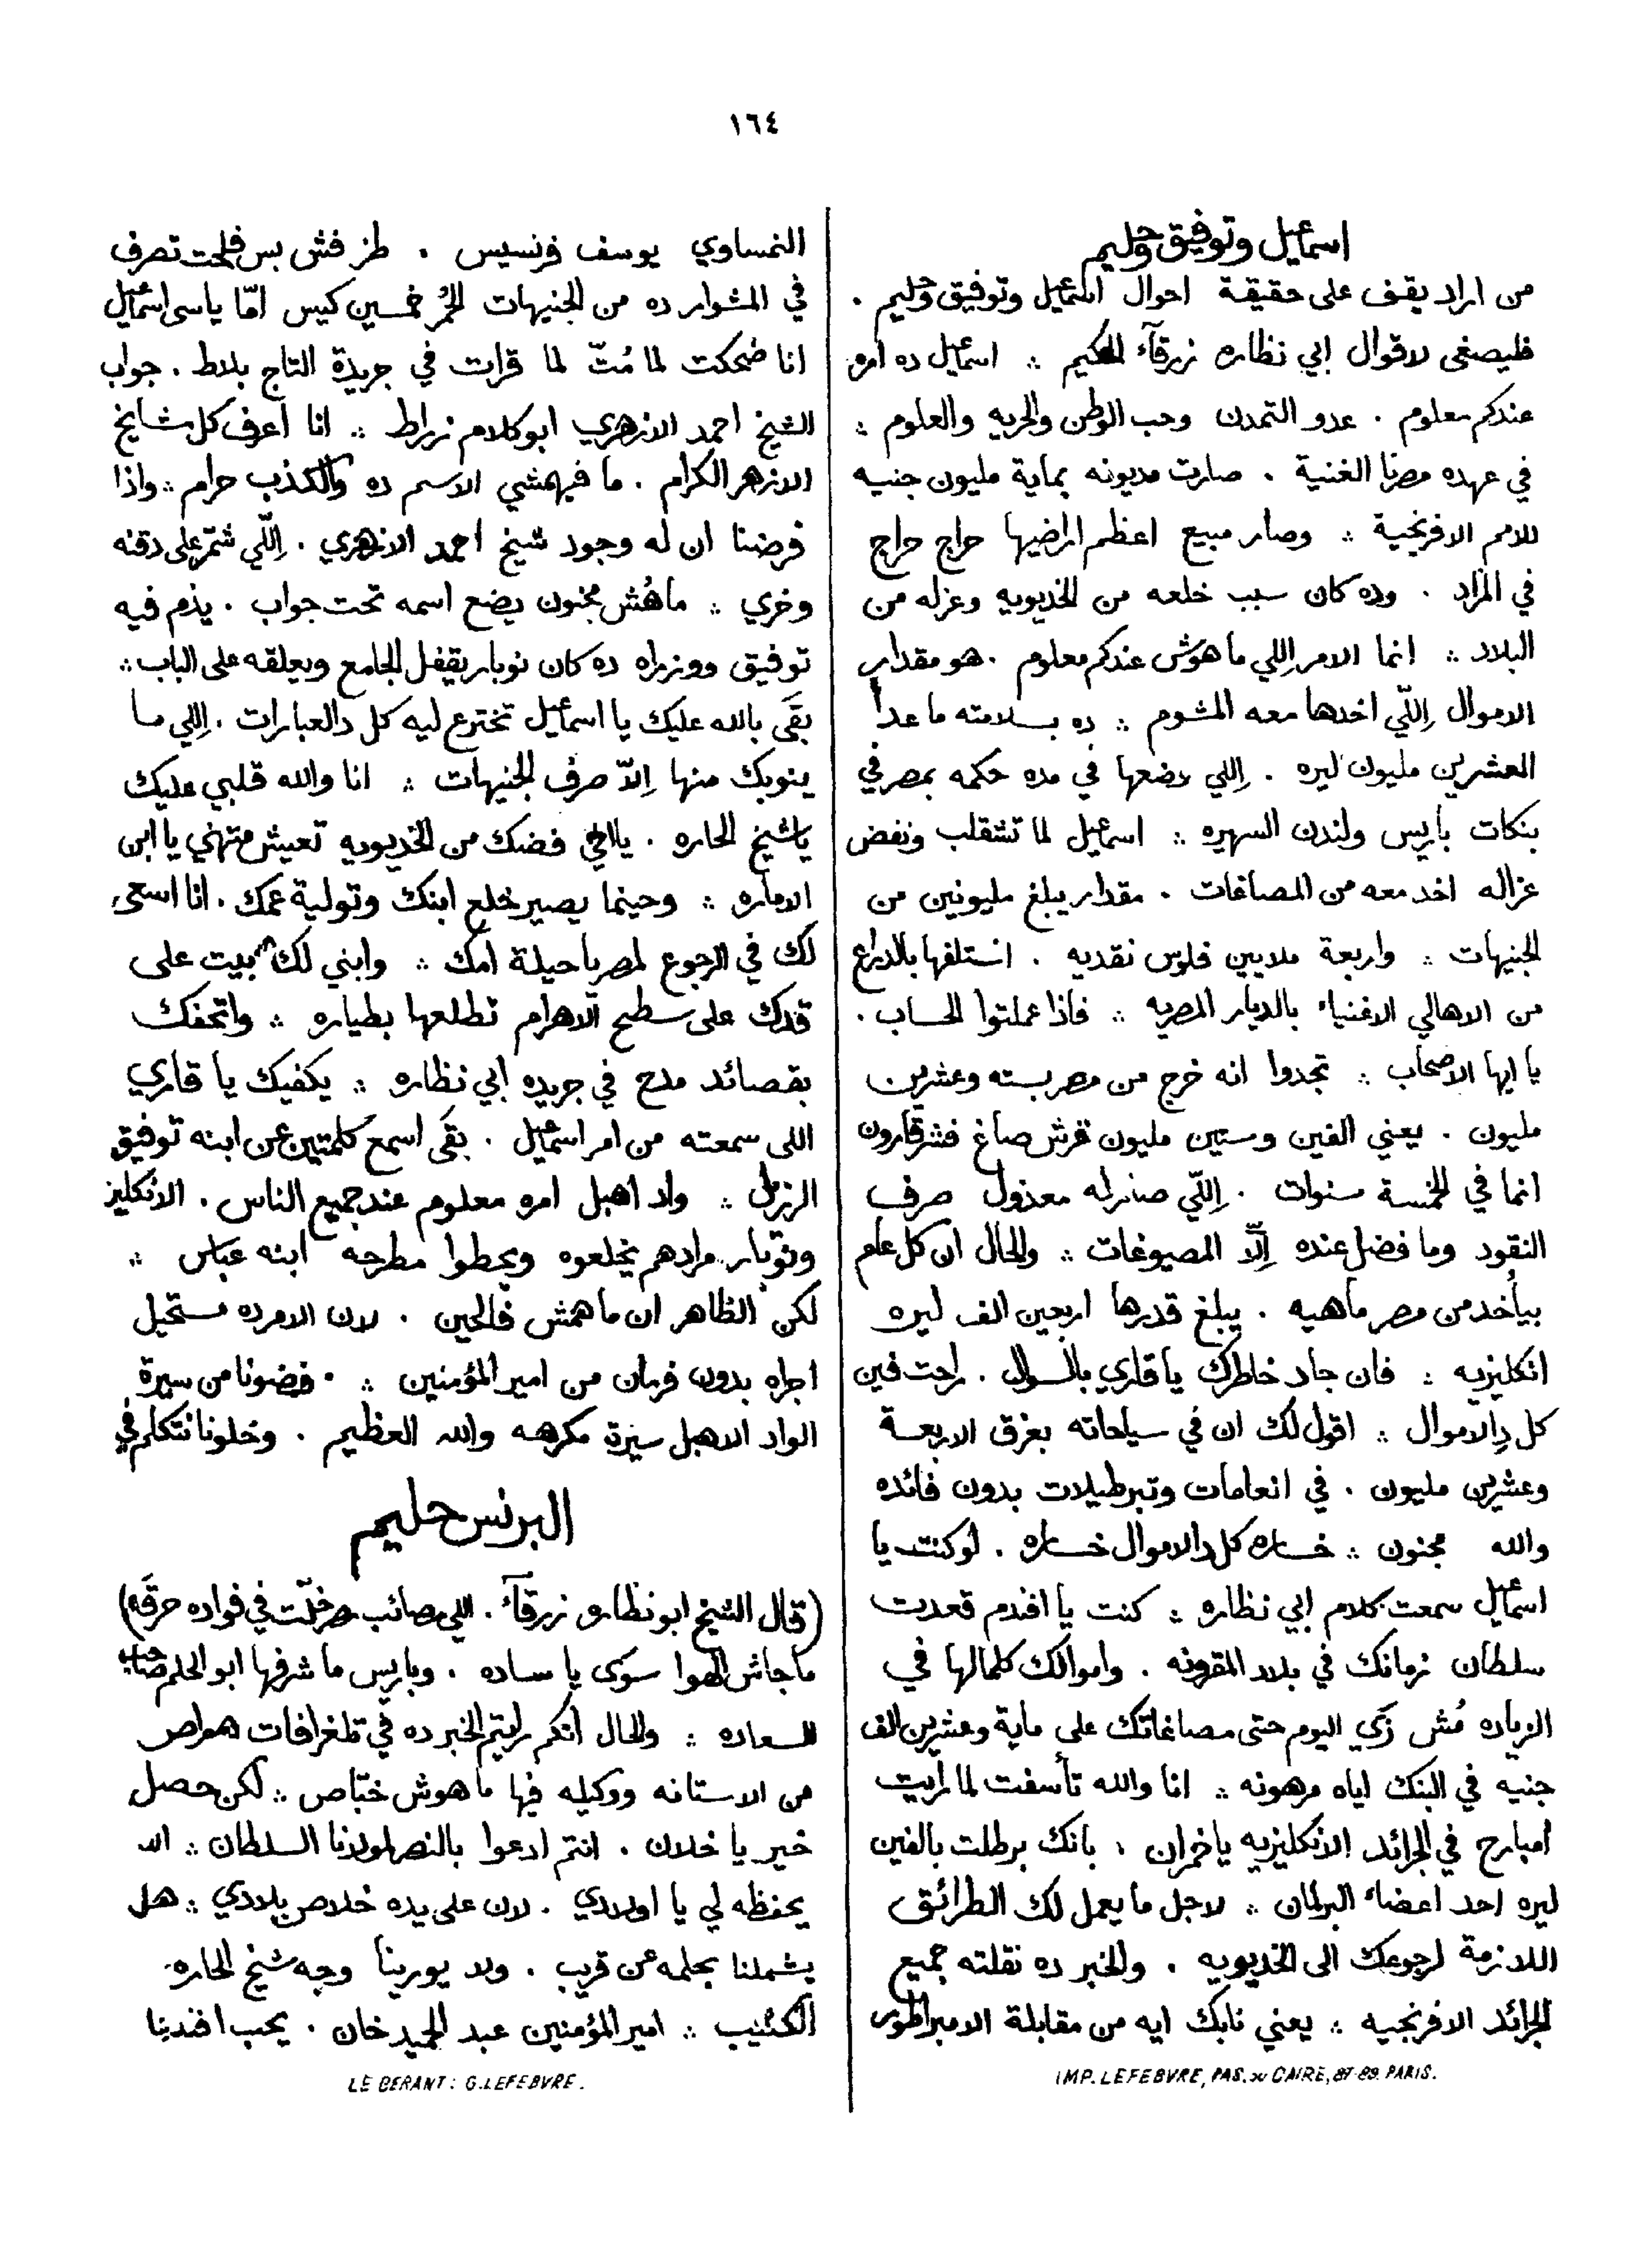 ١٦٤
اسماعيل وتوفيق وحليم
من اراد يقف على حقيقة احوال اسماعيل وتوفيق وحليم .
فليصغى لاقوال ابي نظاره زرقآء الحكيم ∴ اسماعيل ده امره
عندكم معلوم . عدو التمدن وحب الوطن والحريه والعلوم ∴
في عهده مصرنا الغنية . صارت مديونه بماية مليون جنيه
للامم الافرنجية ∴ وصار مبيع اعظم اراضيها حراج حراج
في المزاد . وده كان سبب خلعه من الخديويه وعزله من
البلاد ∴ انما الامر اللي ما هوش عندكم معلوم . هو مقدار
الاموال اِللّي اخدها معه المشوم ∴ ده بسلامته ما عدا
العشرين مليون ليره . اِللي وضعها في مده حكمه بمصر في
بنكات باريس ولندن السهيره ∴ اسماعيل لما تشقلب ونفض
عزاله اخد معه من المصاغات . مقدار يبلغ مليونين من
الجنيهات ∴ واربعة ملايين فلوس نقديه . استلفها بالدراع
من الاهالي الاغنياء بالديار المصريه ∴ فاذا عملتوا الحساب .
يا ايها الاصحاب ∴ تجدوا انه خرج من مصر بسته وعشرين
مليون . يعني الفين وستين مليون قرش صاغ فشر قارون
انما في الخمسة سنوات . اِللّي صار له معذول صرف
النقود وما فضل عنده اِلّا المصيوغات ∴ والحال ان كل عام
بيأخد من مصر ماهيه . يبلغ قدرها اربعين الف ليره
انكليزيه ∴ فان جاد خاطرك يا قاري بالسوال . راحت فين
كل دِالاموال ∴ اقول لك ان في سياحاته بعزق الاربعة
وعشرين مليون . في انعامات وتبرطيلات بدون فائده
والله مجنون ∴ خساره كل دالاموال خساره . لو كنت يا
اسماعيل سمعت كلام ابي نظاره ∴ كنت يا افندم قعدت
سلطان زمانك في بلاد المقرونه . واموالك كلمالها في
الزياده مُش زَي اليوم حتى مصاغاتك على ماية وعشرين الف
جنيه في البنك اياه مرهونه ∴ انا والله تأسفت لما رايت
امبارح في الجرائد الانكليزيه يا خمران . بانك برطلت بالفين
ليره احد اعضاء البرلمان ∴ لاجل ما يعمل لك الطرائق
اللازمة لرجوعك الى الخديويه . والخبر ده نقلته جميع
الجرائد الافرنجيه ∴ يعني نابك ايه من مقابلة الامبراطور
IMP. LEFEBVRE, PAS. DU CAIRE, 87-89. PARIS.
النمساوي يوسف فرنسيس . طز فش بس فلحت تصرف
في المشوار ده من الجنيهات الحُمر خمسين كيس امّا ياسي اسماعيل
انا ضحكت لما مُتّ لما قرات في جريدة التاج بلاط . جواب
الشيخ احمد الازهري ابو كلام زراط ∴ انا اعرف كل مشايخ
الازهر الكرام . ما فيهمشي الاسم ده والكذب حرام ∴ واذا
فرضنا ان له وجود شيخ احمد الازهري . اِللّي شتّم على دقنه
وخري ∴ ماهُش مجنون يضع اسمه تحت جواب . يذم فيه
توفيق ووزراه ده كان نوبار يقفل الجامع ويعلقه على الباب ∴
بقَى بالله عليك يا اسماعيل تخترع ليه كل دالعبارات . اِللي ما
ينوبك منها اِلاّ صرف الجنيهات ∴ انا والله قلبي عليك
ياشيخ الحاره . ياأخي فضك من الخديويه تعيش متهني يا ابن
الاماره ∴ وحينما يصير خلع ابنك وتولية عمك . انا اسعى
لك في الرجوع لمصر يا حيلة امك ∴ وابني لك بيت على
قدك على سطح الاهرام تطلعها بطياره ∴ واتحفك
بقصائد مدح في جريده ابي نظاره ∴ يكفيك يا قاري
اللى سمعته من امر اسماعيل . بقَى اسمع كلمتين عن ابنه توفيق
الرزيل ∴ واد اهبل امره معلوم عند جميع الناس . الانكليز
ونوبار مرادهم يخلعوه ويحطوا مطرحه ابنه عباس ∴
لكن الظاهر ان ما همش فالحين . لان الامر ده مستحيل
اجراه بدون فرمان من امير المؤمنين ∴ . فضونا من سيرة
الواد الاهبل سيرة مكرهه والله العظيم . وخلونا نتكلم في
البرنس حليم
(قال الشيخ ابو نظاره زرقآء . اللي مصائب مصر خلّت في فواده حرقَه)
ماجاش الهوا سوَى يا ساده . وباريس ما شرفها ابو الحلم صاحب
السعاده ∴ والحال انكم رايتم الخبر ده في تلغرافات هواص
من الاستانه ووكيله فيها ما هوش خبّاص ∴ لكن حصل
خير يا خلان . انتم ادعوا بالنصر لمولانا السلطان ∴ الله
يحفظه لي يا اولادي . لان على يده خلاص بلادي ∴ هل
يشملنا بحلمه عن قريب . ولا يورينا وجه شيخ الحاره
الكئيب ∴ امير المؤمنين عبد الحميد خان . يحب افندينا
LE GERANT: G. LEFEBVRE.